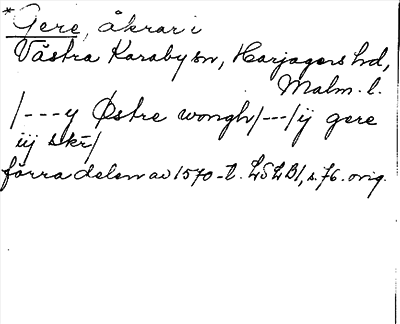 * Gere, åkrar i
Västra Karaby sn, Harjagers hd,
Malm. l.
/---y Østre wongh/---/ij gere
iij skr/
förra delen av 1570-t. LSLB1, s. 76. orig.